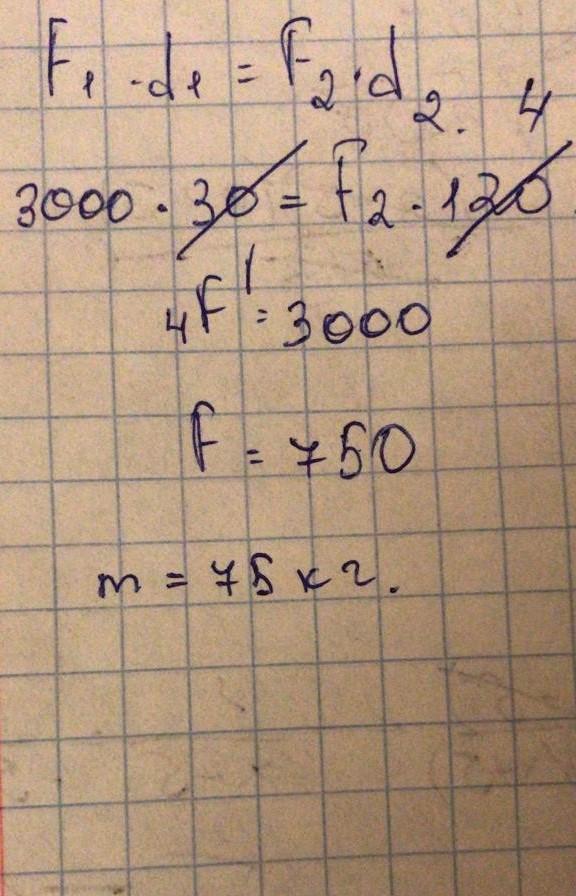 F₁ · d₁ = F₂ · d₂.
4
3000 · 30 = F₂ · 120
1
4F = 3000
F = 750
m = 75 кг.